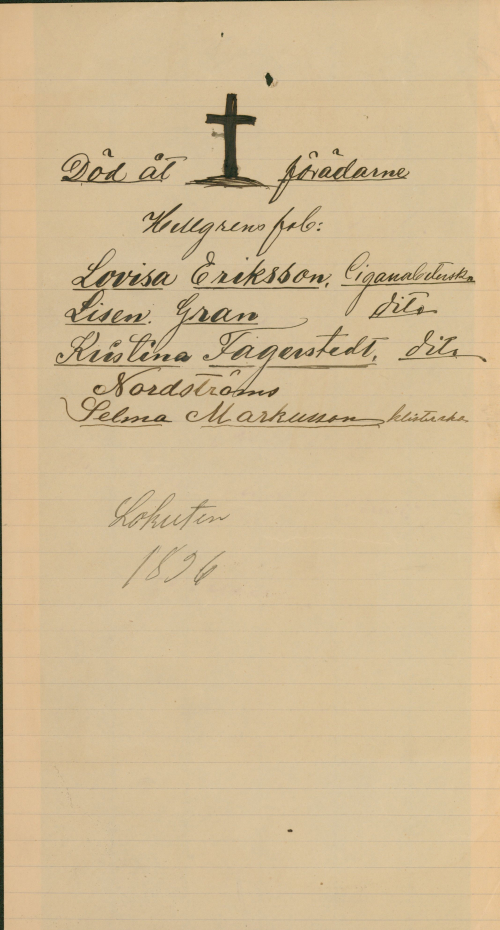 Död åt förädarne
Hellgrens fab:
Lovisa Eriksson, Cigarrarbeterska
Lisen Gran dito
Kristina Fagerstedt, dito
Nordströms
Selma Markusson klisterska
1896